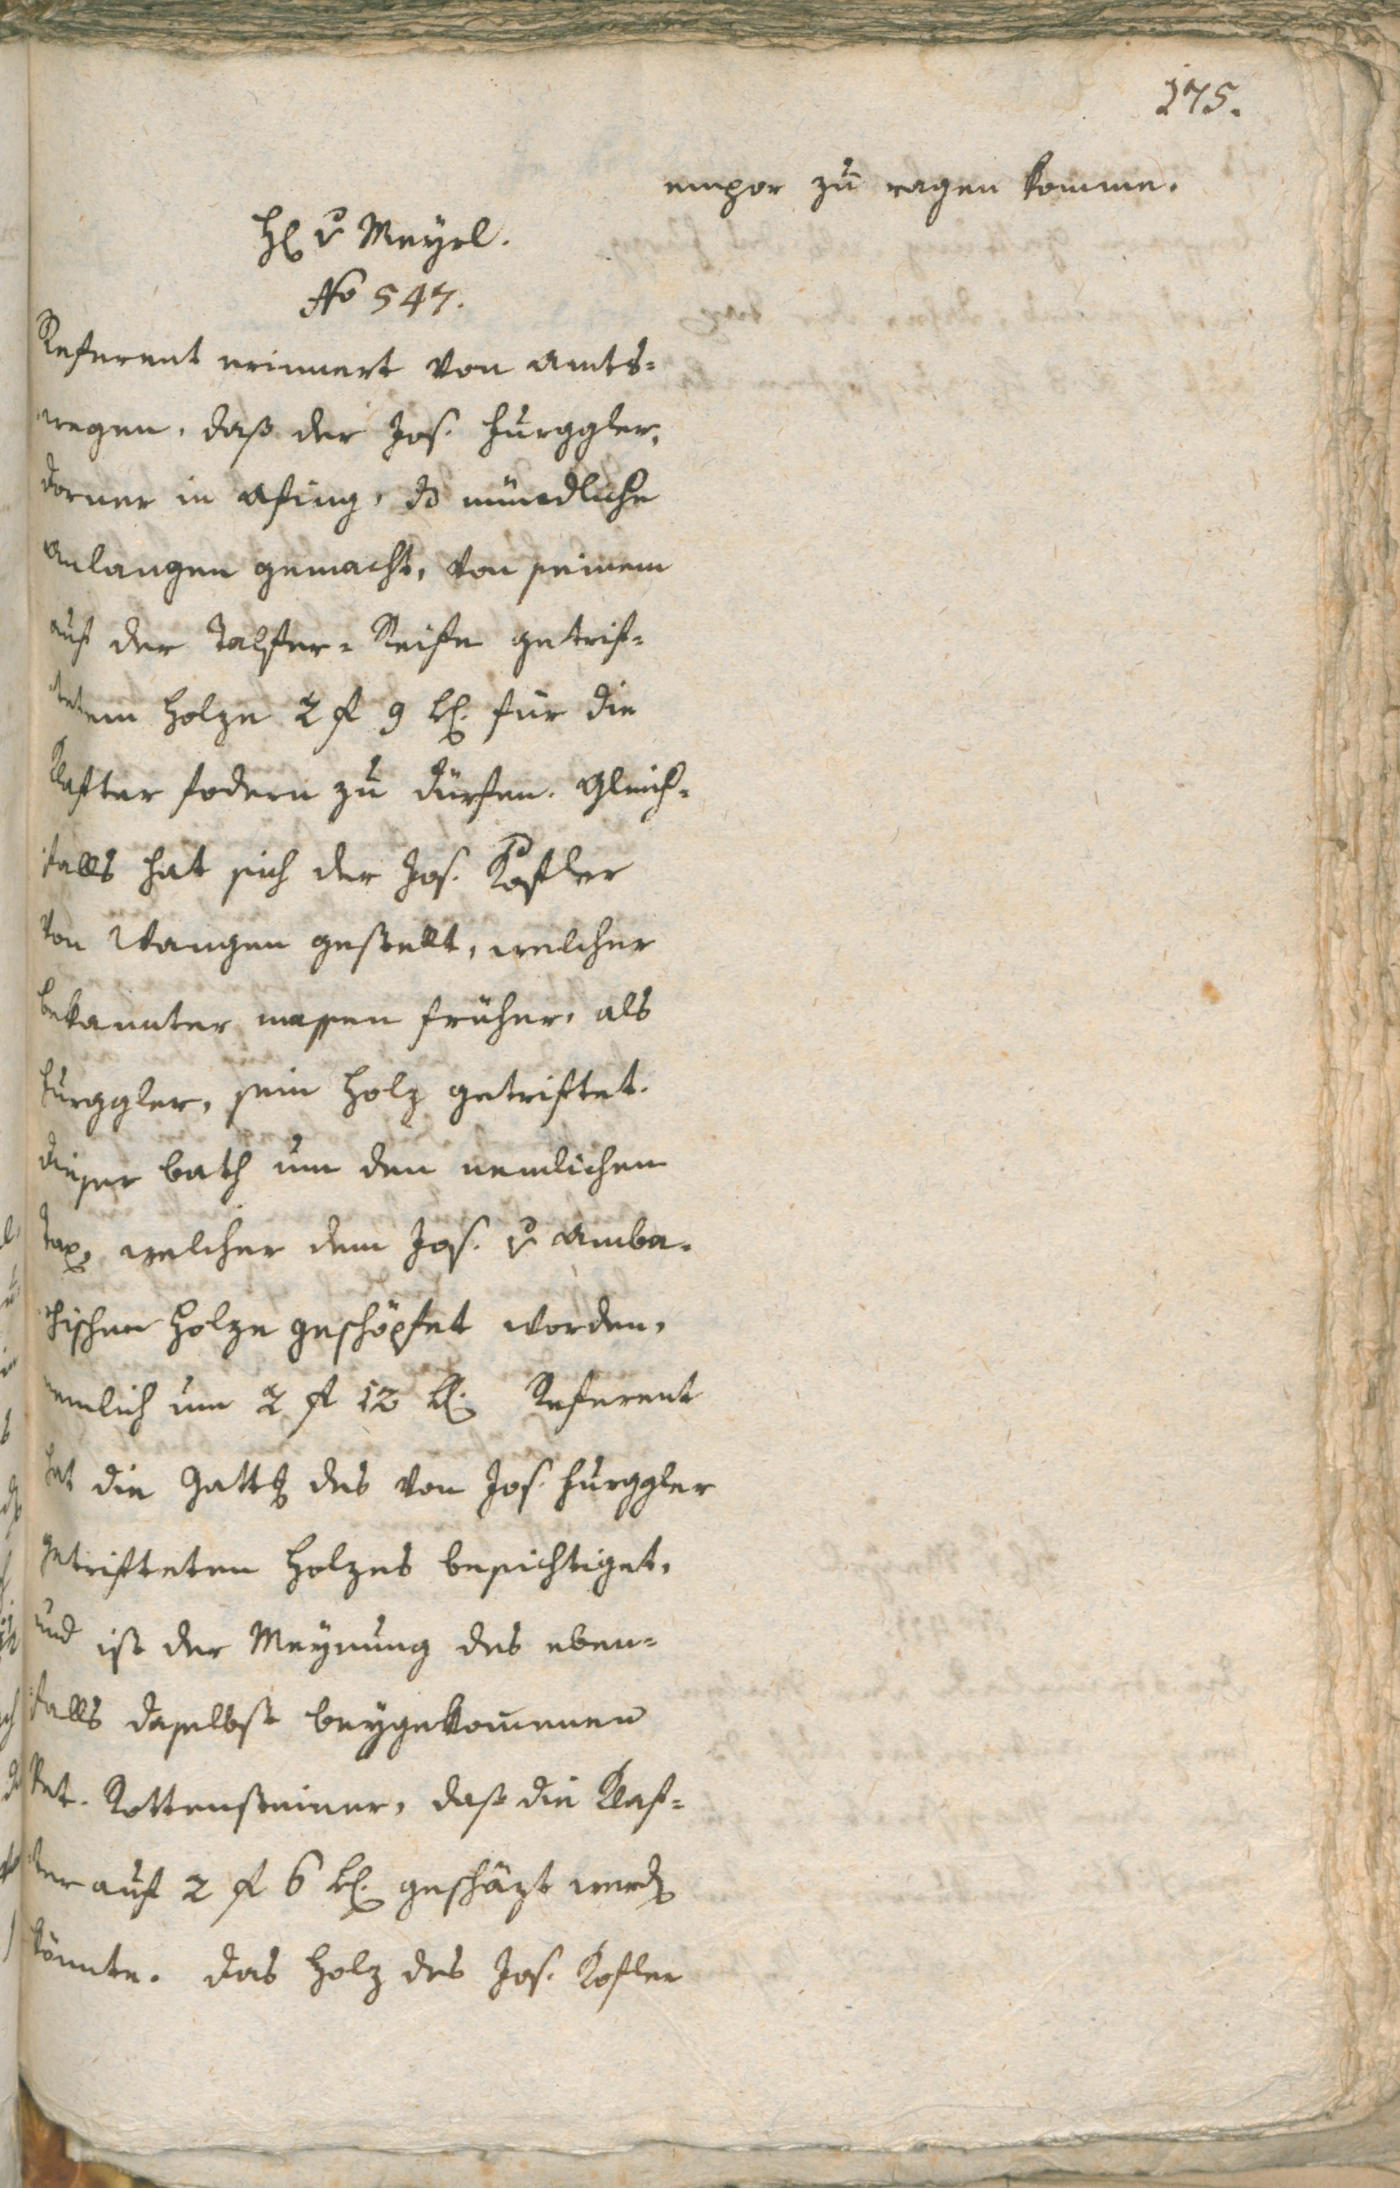 175.
empor zu ragen komme.
H v Meyrl.
No 547.
Referent erinnert von Amts-
wegen, daß der Jos. Furggler,
Dorner in Afing, ds mündliche
Anlangen gemacht, von seinem
auf der Talfer-Reife getrif-
tetem Holze 2 f 9 kr. für die
Klafter fodern zu dürfen. Gleich-
falls hat sich der Jos. Kofler
von Wangen gestellt, welcher
bekannter massen früher, als
Furggler, sein Holz getriftet.
Dieser bath um den nemlichen
Tax, welcher dem Jos. v Amba-
chischen Holze geschöpfet worden,
nemlich um 2 f 12 kr. Referent
hat die Gattg des von Jos. Furggler
getrifteten Holzes besichtiget,
und ist der Meynung des eben-
falls daselbst beygekommenen
Rottensteiner, daß die Klaf-
ter auf 2 f 6 kr. geschäzt werdn
könnte. Das Holz des Jos. Kofler